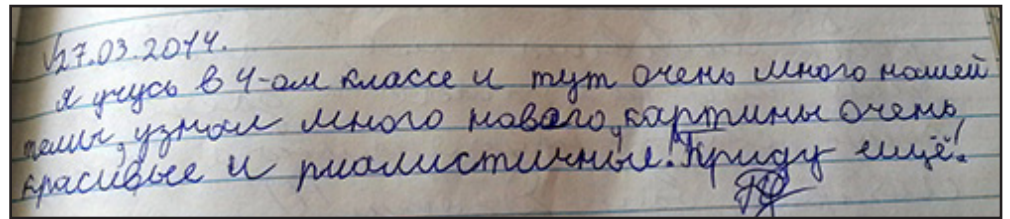 27.03.2014.
Я учусь в 4-ом классе и тут очень много нашей
темы, узнал много новаго, картины очень
красивые и риалистичные! Приду ещё!